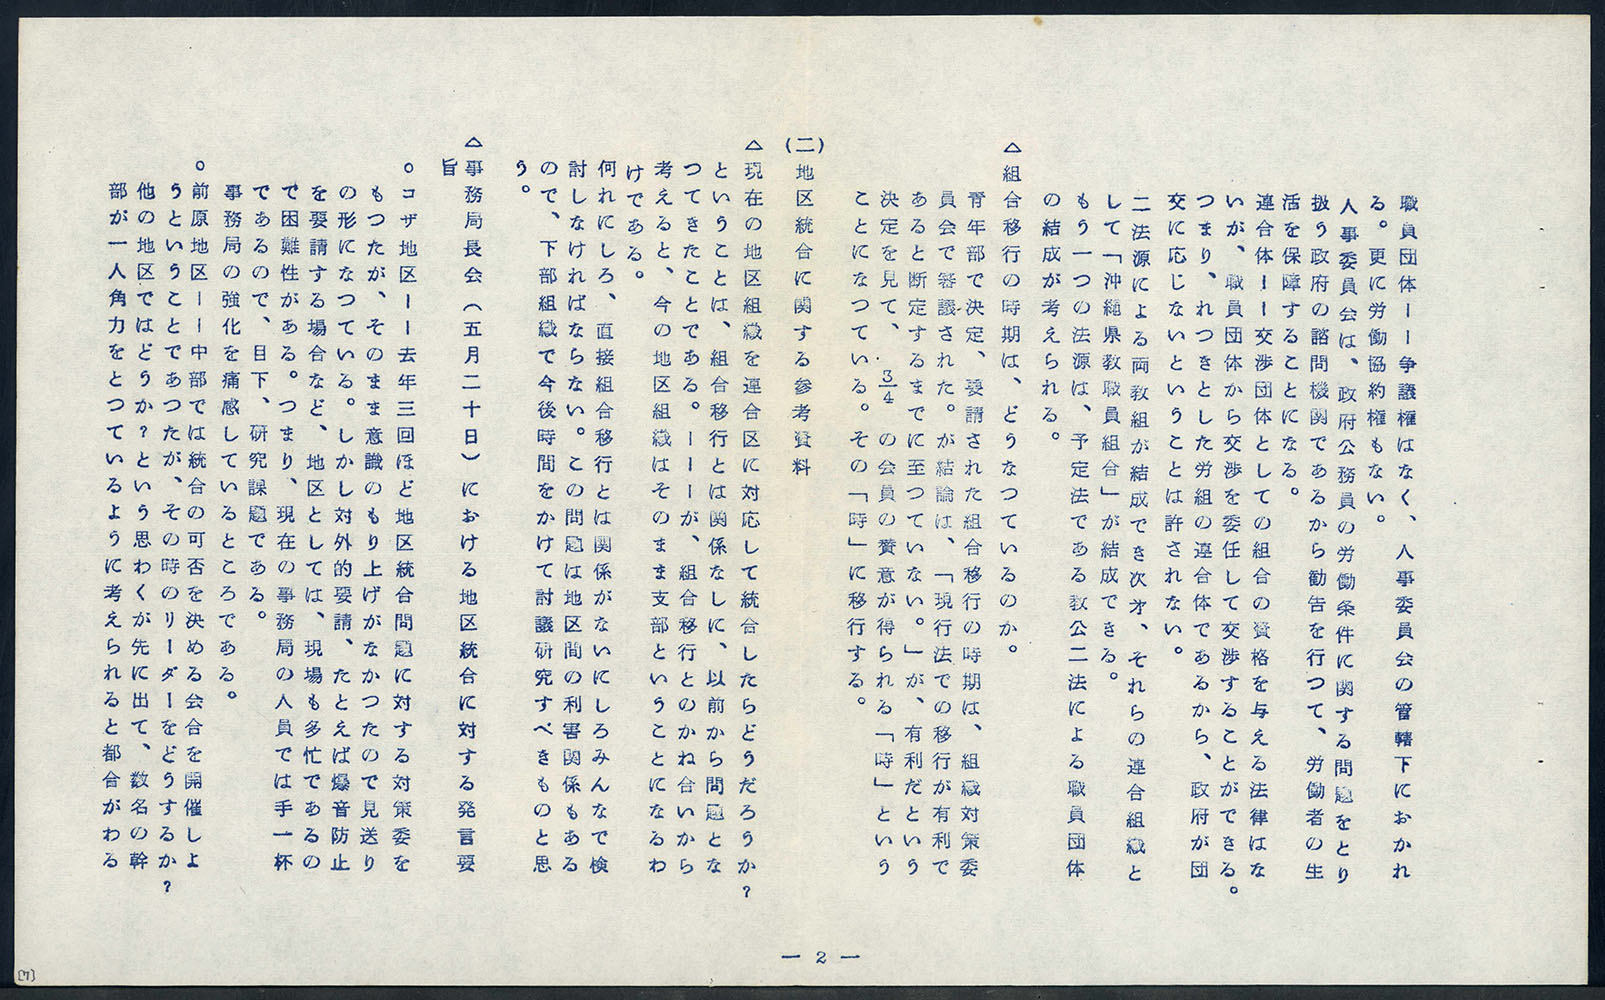 職員団体ーー争議権はなく、人事委員会の管轄下におかれ
る。更に労働協約権もない。
人事委員会は、政府公務員の労働条件に関する問題をとり
扱う政府の諮問機関であるから勧告を行つて、労働者の生
活を保障することになる。
連合体ーー交渉団体としての組合の資格を与える法律はな
いが、職員団体から交渉を委任して交渉することができる。
つまり、れつきとした労組の連合体であるから、政府が団
交に応じないということは許されない。
二法源による両教組が結成でき次才、それらの連合組織と
して「沖縄県教職員組合」が結成できる。
もう一つの法源は、予定法である教公二法による職員団体
の結成が考えられる。
△組合移行の時期は、どうなつているのか。
青年部で決定、要請された組合移行の時期は、組織対策委
員会で審議された。が結論は、「現行法での移行が有利で
あると断定するまでに至つていない。」が、有利だという
決定を見て、3/4の会員の賛意が得られる「時」という
ことになつている。その「時」に移行する。
(二)地区統合に関する参考資料
△現在の地区組織を連合区に対応して統合したらどうだろうか?
ということは、組合移行とは関係なしに、以前から問題とな
つてきたことである。ーーが、組合移行とのかね合いから
考えると、今の地区組織はそのまま支部ということになるわ
けである。
何れにしろ、直接組合移行とは関係がないにしろみんなで検
討しなければならない。この問題は地区間の利害関係もある
ので、下部組織で今後時間をかけて討議研究すべきものと思
う。
△事務局長会(五月二十日)における地区統合に対する発言要
旨
○コザ地区ーー去年三回ほど地区統合問題に対する対策委を
もつたが、そのまま意識のもり上げがなかつたので見送り
の形になつている。しかし対外的要請、たとえば爆音防止
を要請する場合など、地区としては、現場も多忙であるの
で困難性がある。つまり、現在の事務局の人員では手一杯
であるので、目下、研究課題である。
事務局の強化を痛感しているところである。
○前原地区ーー中部では統合の可否を決める会合を開催しよ
うということであつたが、その時のリーダーをどうするか?
他の地区ではどうか?という思わくが先に出て、数名の幹
部が一人角力をとつているように考えられると都合がわる
— 2 —
[7]